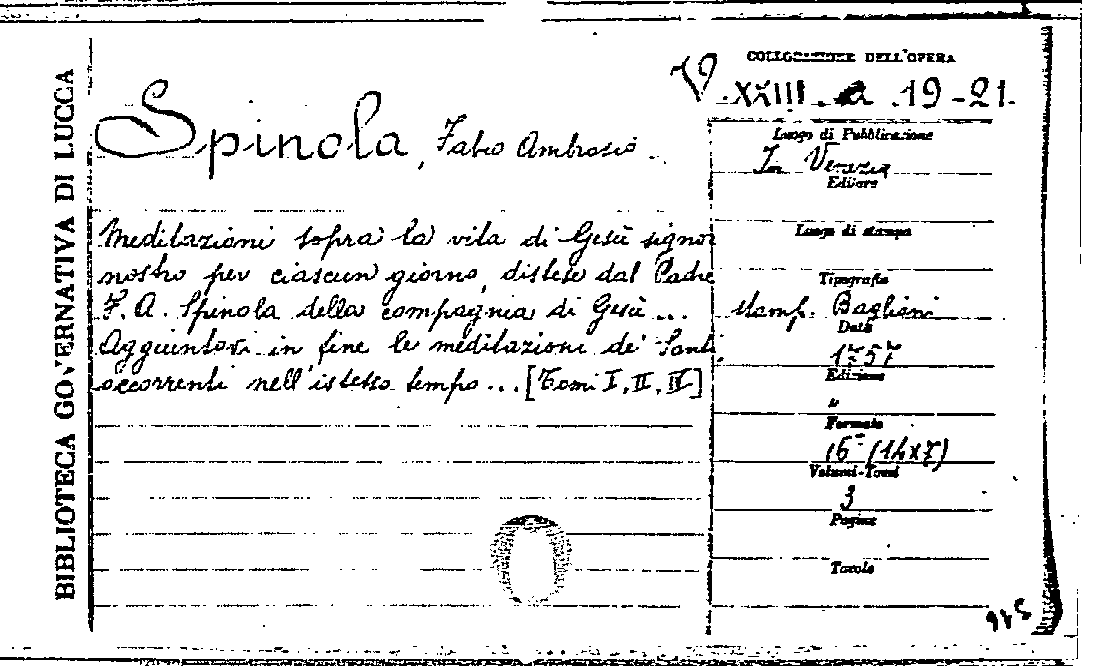 BIBLIOTECA GOVERNATIVA DI LUCCA
Spinola, Fabio Ambrosio.
Meditazioni sopra la vita di Gesù signor
nostro per ciascun giorno, distese dal Padre
F. A. Spinola della compagnia di Gesù ...
Aggiuntovi in fine le meditazioni de' Santi
occorrenti nell'istesso tempo ... [Tomi I, II, III]
COLLOCAZIONE DELL'OPERA
XXIII. a .19-21.
Luogo di Pubblicazione
In Venezia
Editore
Luogo di stampa
Tipografia
stamp. Baglioni
Data
Edizione
"
Formato
16° (14x7)
Volumi-Tomi
3
Pagine
Tavole